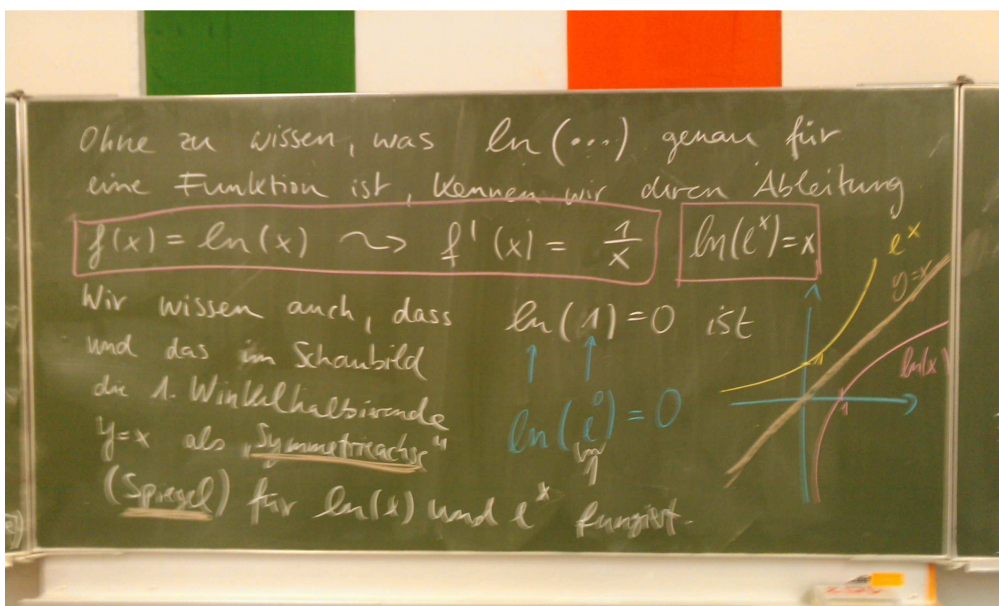 Ohne zu wissen, was ln(...) genau für
eine Funktion ist, kennen wir deren Ableitung
f(x) = ln(x) ⤳ f'(x) = 1/x
ln(e^x) = x
Wir wissen auch, dass ln(1) = 0 ist
und das im Schaubild
die 1. Winkelhalbierende
y=x als „Symmetrieachse"
(Spiegel) für ln(x) und e^x fungiert.
ln(e^0) = 0
1
e^x
y=x
1
ln(x)
1